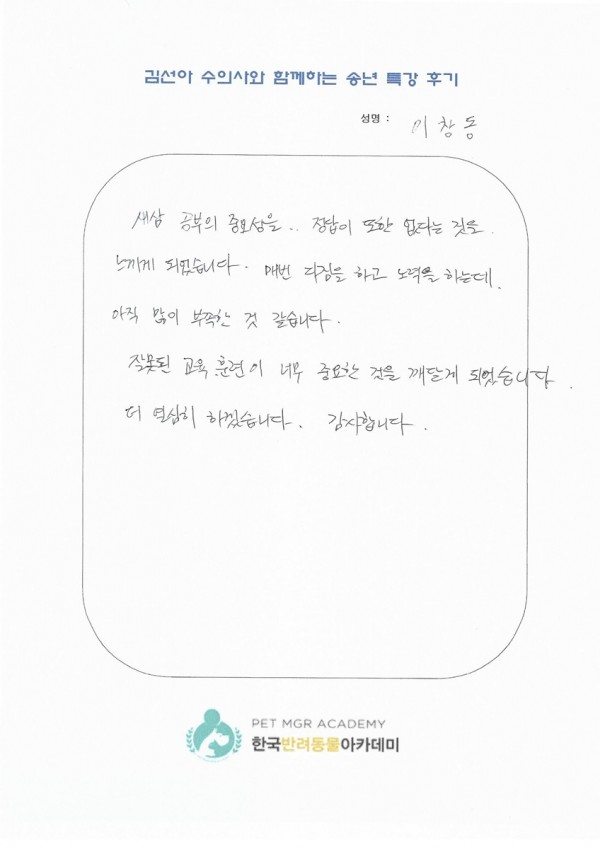 김선아 수의사와 함께하는 송년 특강 후기
성명 : 이창동
새삼 공부의 중요성을.. 정답이 또한 없다는 것을.
느끼게 되었습니다. 매번 다짐을 하고 노력을 하는데,
아직 많이 부족한 것 같습니다.
잘못된 교육, 훈련이 너무 중요한 것을 깨닫게 되었습니다.
더 열심히 하겠습니다. 감사합니다.
PET MGR ACADEMY
한국반려동물아카데미